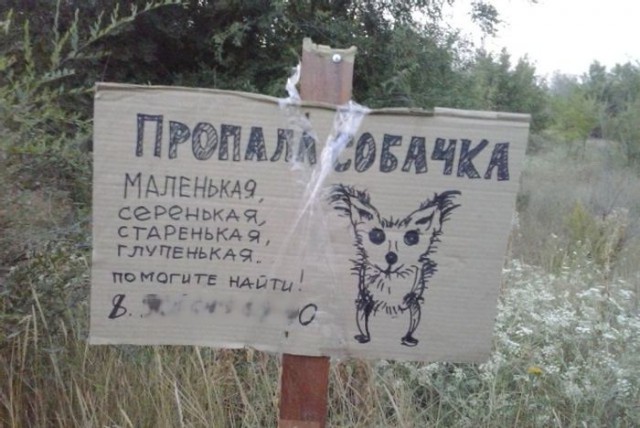 ПРОПАЛА СОБАЧКА
МАЛЕНЬКАЯ,
СЕРЕНЬКАЯ,
СТАРЕНЬКАЯ,
ГЛУПЕНЬКАЯ.
ПОМОГИТЕ НАЙТИ!